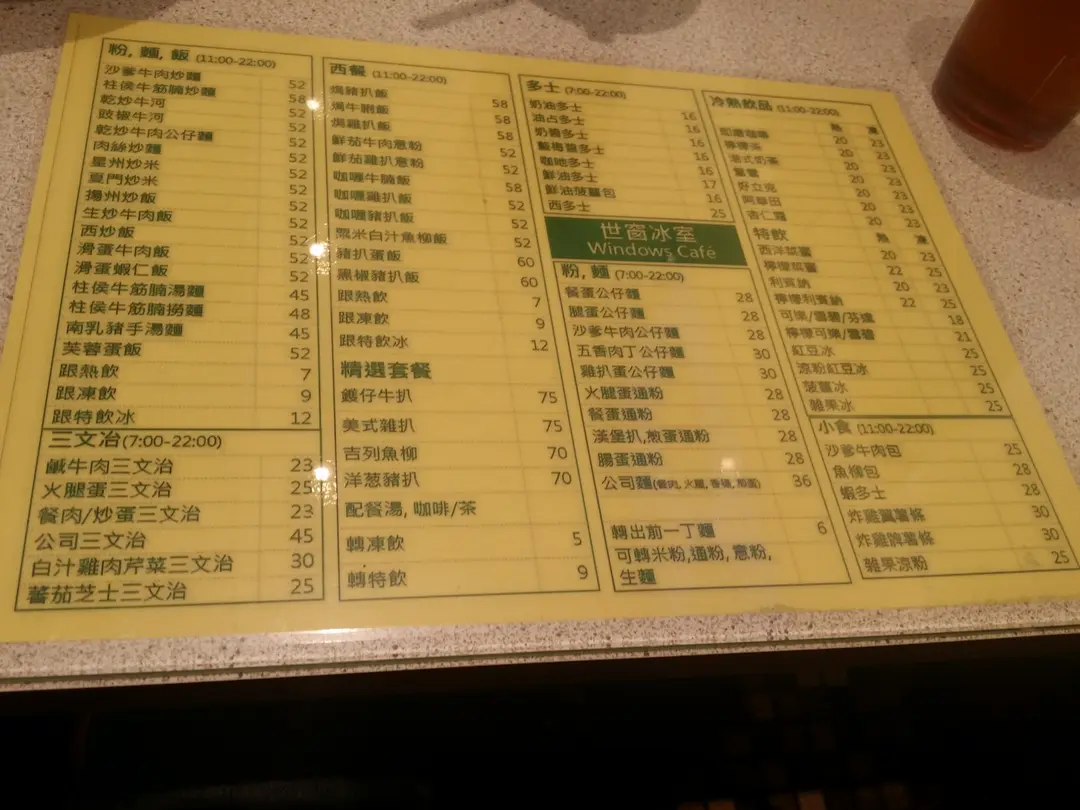 粉, 麵, 飯 (11:00-22:00)
沙爹牛肉炒麵 52
柱侯牛筋腩炒麵 58
乾炒牛河 52
豉椒牛河 52
乾炒牛肉公仔麵 52
肉絲炒麵 52
星州炒米 52
夏門炒米 52
揚州炒飯 52
生炒牛肉飯 52
西炒飯 52
滑蛋牛肉飯 52
滑蛋蝦仁飯 52
柱侯牛筋腩湯麵 45
柱侯牛筋腩撈麵 48
南乳豬手湯麵 45
芙蓉蛋飯 52
跟熱飲 7
跟凍飲 9
跟特飲冰 12
三文治(7:00-22:00)
鹹牛肉三文治 23
火腿蛋三文治 25
餐肉/炒蛋三文治 23
公司三文治 45
白汁雞肉芹菜三文治 30
蕃茄芝士三文治 25
西餐 (11:00-22:00)
焗豬扒飯 58
焗牛脷飯 58
焗雞扒飯 58
鮮茄牛肉意粉 52
鮮茄雞扒意粉 52
咖喱牛腩飯 58
咖喱雞扒飯 52
咖喱豬扒飯 52
粟米白汁魚柳飯 52
豬扒蛋飯 60
黑椒豬扒飯 60
跟熱飲 7
跟凍飲 9
跟特飲冰 12
精選套餐
鑊仔牛扒 75
美式雜扒 75
吉列魚柳 70
洋葱豬扒 70
配餐湯, 咖啡/茶
轉凍飲 5
轉特飲 9
多士 (7:00-22:00)
奶油多士 16
油占多士 16
奶醬多士 16
鮮油多士 17
鮮油菠蘿包 16
西多士 25
世窗冰室
Windows Café
粉, 麵 (7:00-22:00)
餐蛋公仔麵 28
腿蛋公仔麵 28
沙爹牛肉公仔麵 28
五香肉丁公仔麵 30
雞扒蛋公仔麵 30
火腿蛋通粉 28
餐蛋通粉 28
漢堡扒,煎蛋通粉 28
腸蛋通粉 28
公司麵 36
轉出前一丁麵 6
可轉米粉,通粉, 意粉,
生麵
冷熱飲品 (11:00-22:00)
熱 凍
檸檬茶 20 23
港式奶茶 20 23
好立克 20 23
阿華田 20 23
杏仁霜 20 23
特飲 熱 凍
西洋菜蜜 20 23
檸檬菜蜜 22 25
利賓納 20 23
檸檬利賓納 22 25
可樂/雪碧/芬達 18
檸檬可樂/雪碧 21
紅豆冰 25
涼粉紅豆冰 25
菠蘿冰 25
雜果冰 25
小食 (11:00-22:00)
沙爹牛肉包 25
魚柳包 28
蝦多士 28
炸雞翼薯條 30
炸雞髀薯條 30
雜果涼粉 25